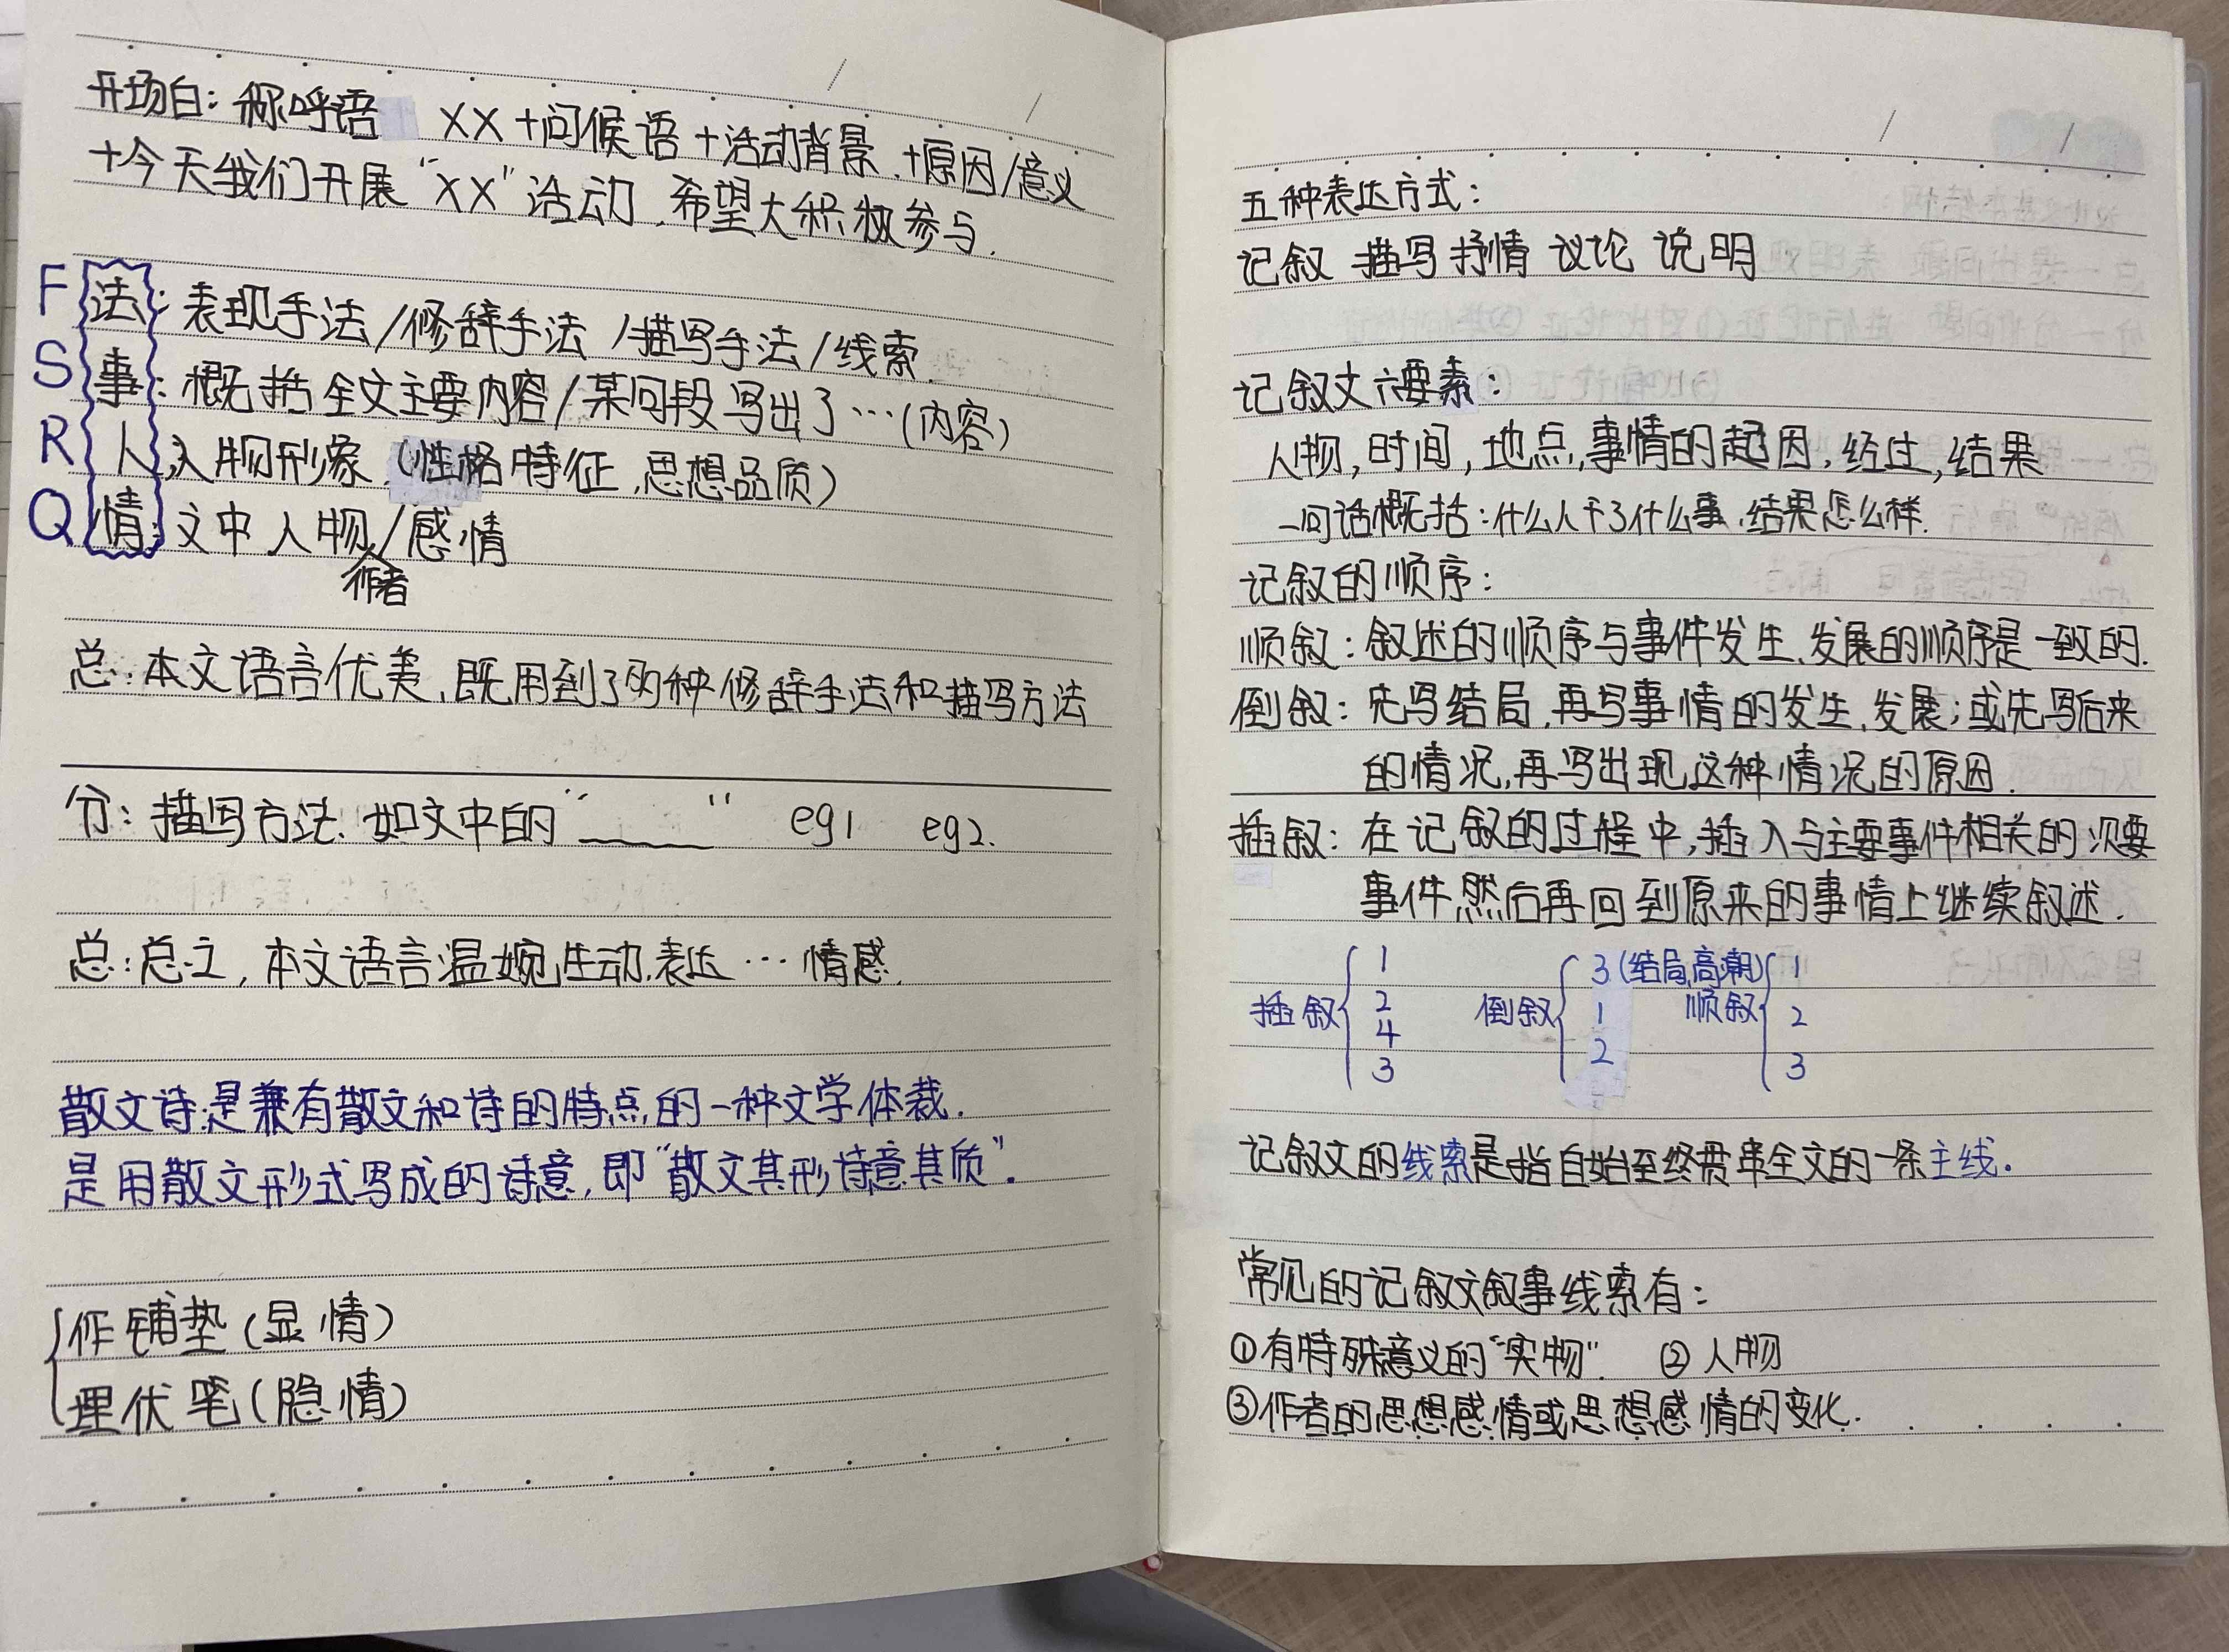 开场白：称呼语 XX+问候语+活动背景.+原因/意义
+今天我们开展“XX”活动,希望大积极参与.
F 法：表现手法/修辞手法/描写手法/线索.
S 事：概括全文主要内容/某句段写出了…(内容)
R 人：人物形象.(性格特征,思想品质)
Q 情：文中人物/感情
作者
总：本文语言优美,既用到了两种修辞手法和描写方法
分：描写方法.如文中的“____” eg1 eg2.
总：总之,本文语言温婉,生动.表达…情感.
散文诗:是兼有散文和诗的特点,的一种文学体裁.
是用散文形式写成的诗意,即“散文其形诗意其质”.
作铺垫(显,情)
埋伏笔(隐,情)
五种表达方式：
记叙 描写 抒情 议论 说明
记叙文六要素：
人物,时间,地点,事情的起因,经过,结果
一句话概括：什么人干了什么事,结果怎么样.
记叙的顺序：
顺叙：叙述的顺序与事件发生、发展的顺序是一致的.
倒叙：先写结局,再写事情的发生、发展；或先写后来
的情况,再写出现这种情况的原因.
插叙：在记叙的过程中,插入与主要事件相关的次要
事件,然后再回到原来的事情上继续叙述.
插叙 1 2 4 3
倒叙 3(结局,高潮) 1 2
顺叙 1 2 3
记叙文的线索是指自始至终贯串全文的一条主线.
常见的记叙文叙事线索有：
①有特殊意义的“实物”. ②人物
③作者的思想感情或思想感情的变化.